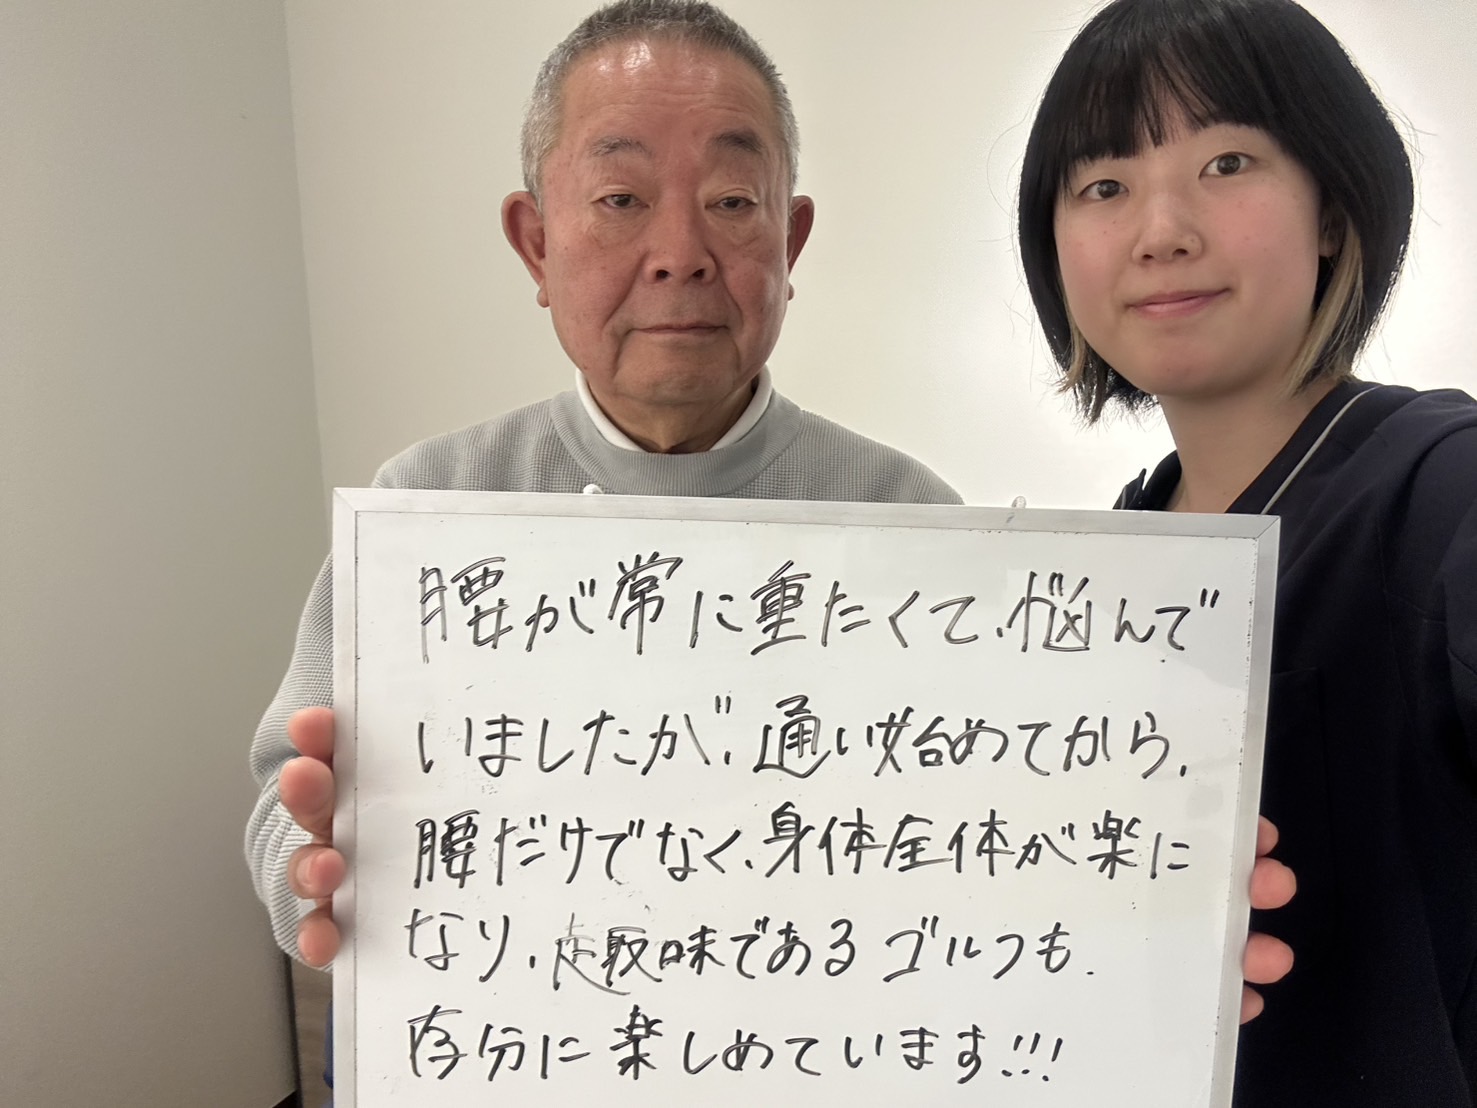 腰が常に重たくて、悩んで
いましたが、通い始めてから、
腰だけでなく、身体全体が楽に
なり、趣味であるゴルフも、
存分に楽しめています!!!